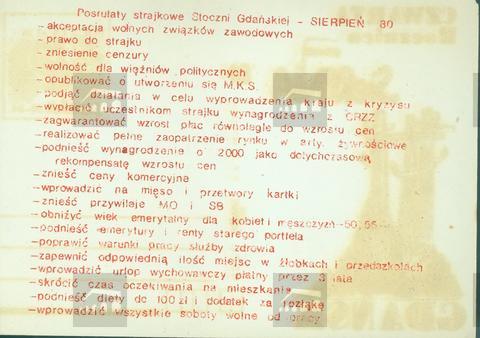 Postulaty strajkowe Stoczni Gdańskiej - SIERPIEŃ 80
-akceptacja wolnych związków zawodowych
-prawo do strajku
-zniesienie cenzury
-wolność dla więźniów politycznych
-opublikować o utworzeniu się M.K.S.
-podjąć działania w celu wyprowadzenia kraju z kryzysu
-wypłacić uczestnikom strajku wynagrodzenia z CRZZ
-zagwarantować wzrost płac równolegle do wzrostu cen
-realizować pełne zaopatrzenie rynku w arty. żywnościowe
-podnieść wynagrodzenie o 2000 jako dotychczasową
rekompensatę wzrostu cen
-znieść ceny komercyjne
-wprowadzić na mięso i przetwory kartki
-znieść przywileje MO i SB
-obniżyć wiek emerytalny dla kobiet i męszczyzn-50,55
-podnieść emerytury i renty starego portfela
-poprawić warunki pracy służby zdrowia
-zapewnić odpowiednią ilość miejsc w żłobkach i przedszkolach
-wprowadzić urlop wychowawczy płatny przez 3 lata
-skrócić czas oczekiwania na mieszkania
-podnieść diety do 100 zł i dodatek za rozłąkę
-wprowadzić wszystkie soboty wolne od pracy